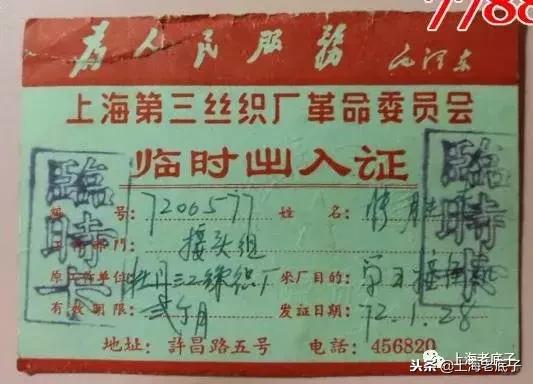 7788
为人民服務
毛泽东
上海第三丝织厂革命委员会
临时出入证
臨時
臨時
号: 7206577 姓名:
部门: 接头组
单位: 三工绵织厂 来厂目的: 学习接
有效期限: 贰个月 发证日期: 72.1.28
地址: 許昌路五号 电话: 456820
头条@上海老底子
上海老底子